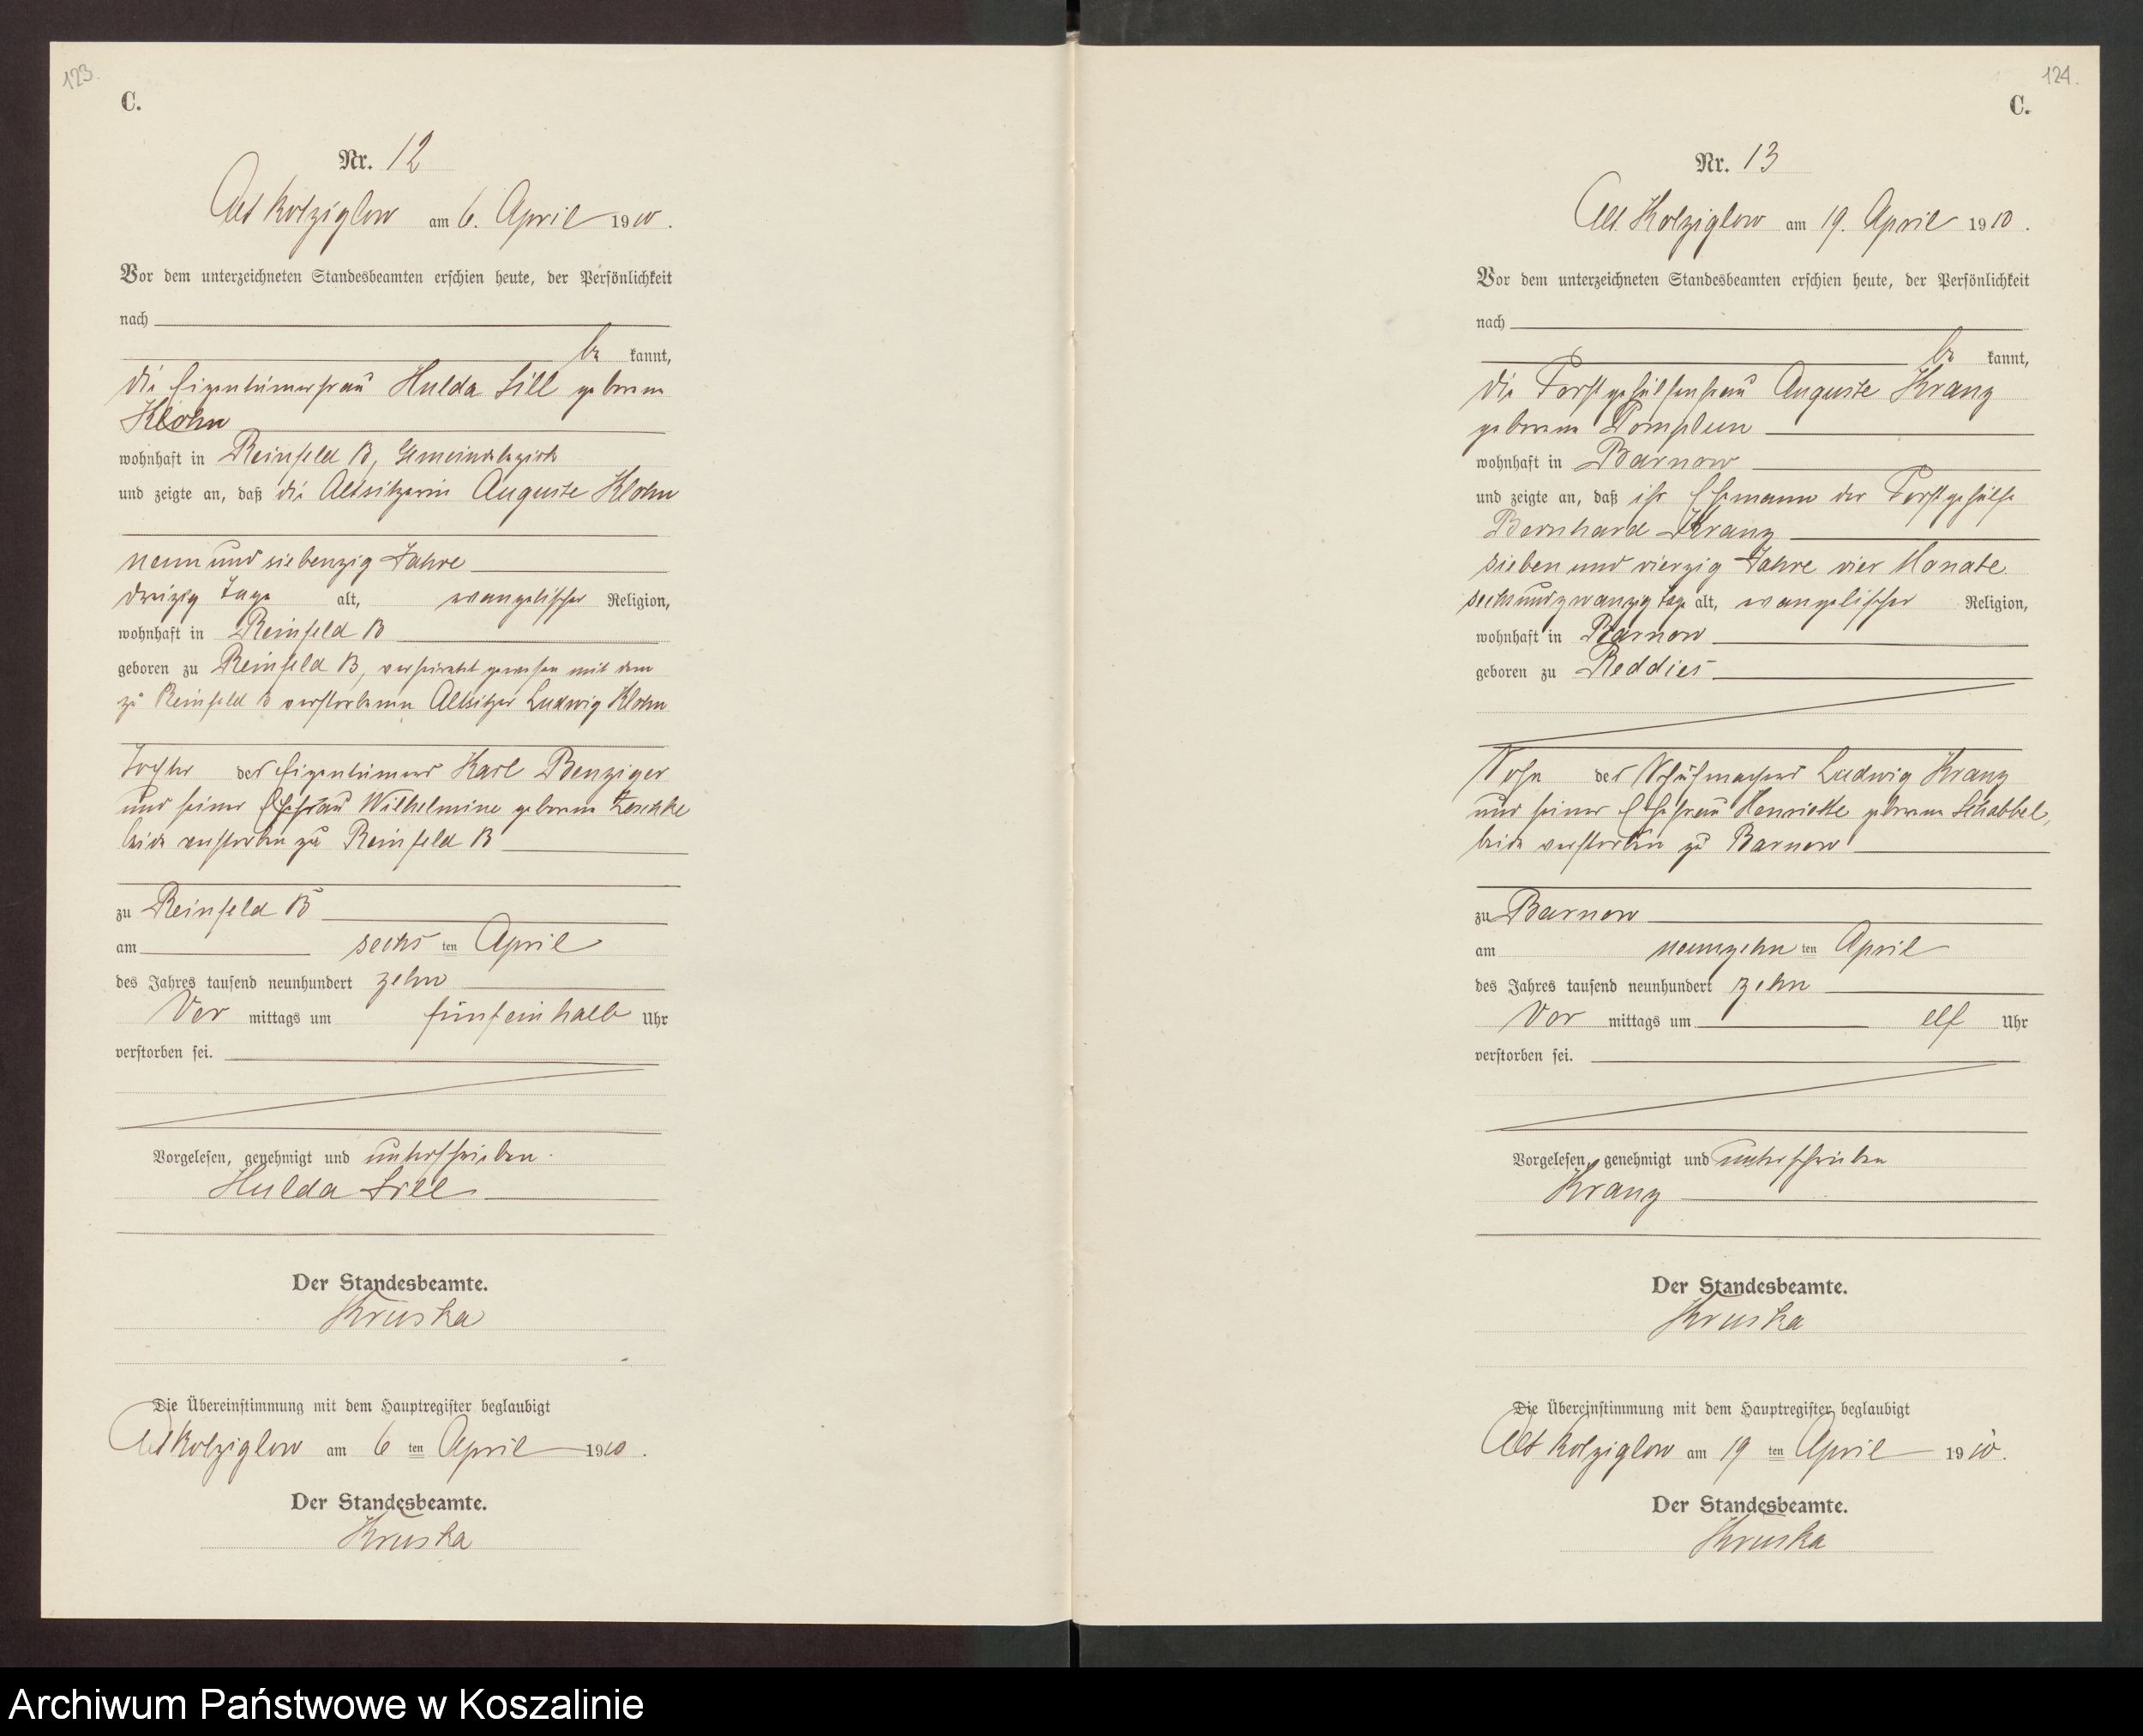 123.
C.
Nr. 12
Alt Kolziglow am 6. April 1910.
Vor dem unterzeichneten Standesbeamten erschien heute, der Persönlichkeit
nach
be kannt,
die Eigentümerfrau Hulda Lill geborene
Klohn
wohnhaft in Reinfeld B, Gemeindebezirk
und zeigte an, daß die Altsitzerin Auguste Klohn
neun und siebenzig Jahre
dreizig Tage alt, evangelischer Religion,
wohnhaft in Reinfeld B
geboren zu Reinfeld B, verheiratet gewesen mit dem
zu Reinfeld B verstorbenen Altsitzer Ludwig Klohn
Tochter des Eigentümers Karl Benziger
und seiner Ehefrau Wilhelmine geborene Zeschke
beide verstorben zu Reinfeld B
zu Reinfeld B
am sechs ten April
des Jahres tausend neunhundert zehn
Vor mittags um fünfeinhalb Uhr
verstorben sei.
Vorgelesen, genehmigt und unterschrieben.
Hulda Lill
Der Standesbeamte.
Kruska
Die Übereinstimmung mit dem Hauptregister beglaubigt
Alt Kolziglow am 6 ten April 1910.
Der Standesbeamte.
Kruska
124.
C.
Nr. 13
Alt Kolziglow am 19. April 1910.
Vor dem unterzeichneten Standesbeamten erschien heute, der Persönlichkeit
nach
be kannt,
die Forstgehülfenfrau Auguste Kranz
geborene Pomplun
wohnhaft in Barnow
und zeigte an, daß ihr Ehemann der Forstgehülfe
Bernhard Kranz
sieben und vierzig Jahre vier Monate
sechsundzwanzig Tage alt, evangelischer Religion,
wohnhaft in Barnow
geboren zu Reddies
Sohn des Schuhmachers Ludwig Kranz
und seiner Ehefrau Henriette geborene Schabbel,
beide verstorben zu Barnow
zu Barnow
am neunzehn ten April
des Jahres tausend neunhundert zehn
Vor mittags um elf Uhr
verstorben sei.
Vorgelesen, genehmigt und unterschrieben
Kranz
Der Standesbeamte.
Kruska
Die Übereinstimmung mit dem Hauptregister beglaubigt
Alt Kolziglow am 19 ten April 1910.
Der Standesbeamte.
Kruska
Archiwum Państwowe w Koszalinie